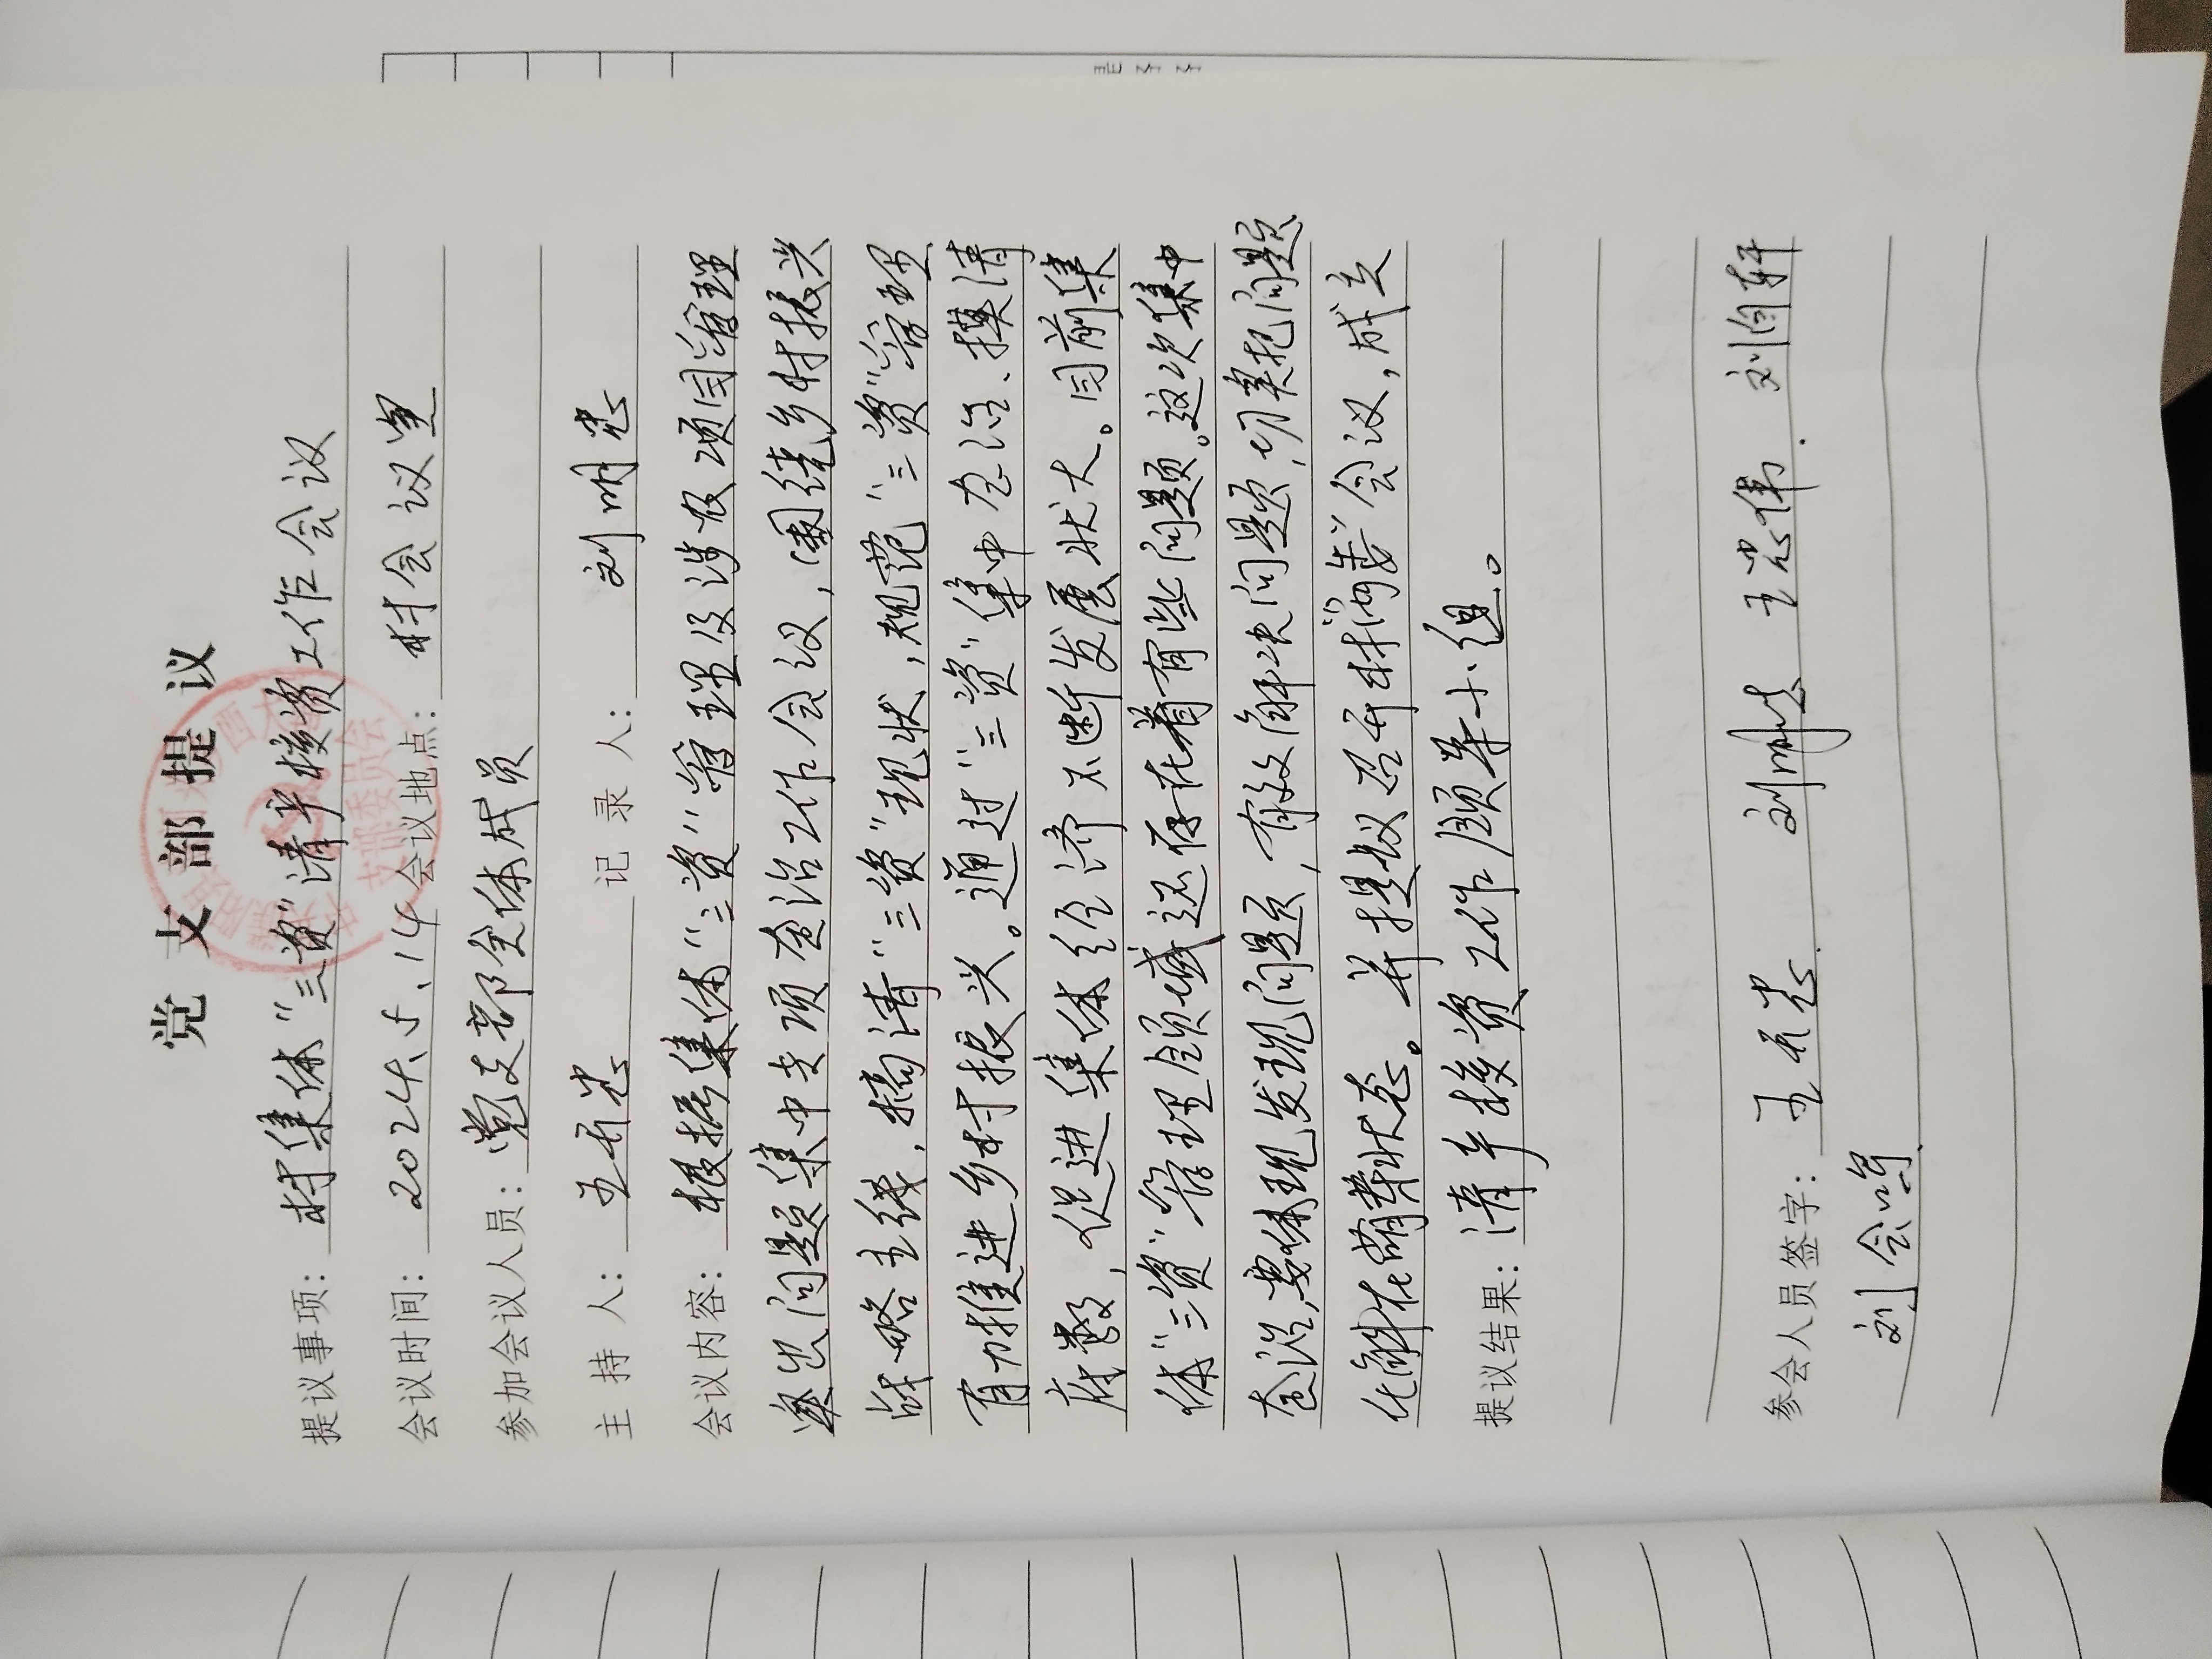 党支部提议
提议事项：村集体“三资”清产核资工作会议
会议时间：2024、5、14 会议地点：村会议室
参加会议人员：党支部全体成员
主持人：王开忠 记录人：刘明忠
会议内容：根据集体“三资”管理及涉农项目管理
突出问题集中专项整治工作会议，围绕乡村振兴
战略主线，搞清“三资”现状，规范“三资”管理
有力推进乡村振兴。通过“三资”集中整治、摸清
底数，促进集体经济不断发展壮大。目前集
体“三资”管理领域还存在着有些问题。这次集中
整治，要体现发现问题，有效解决问题，切实把问题
化解在萌芽状态。并提议召开村“两委”会议，成立
提议结果：清产核资工作领导小组。
参会人员签字：王开忠 刘明忠 王忠伟 刘海轩
刘会